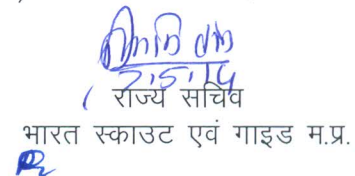 7.5.14
राज्य सचिव
भारत स्काउट एवं गाइड म.प्र.